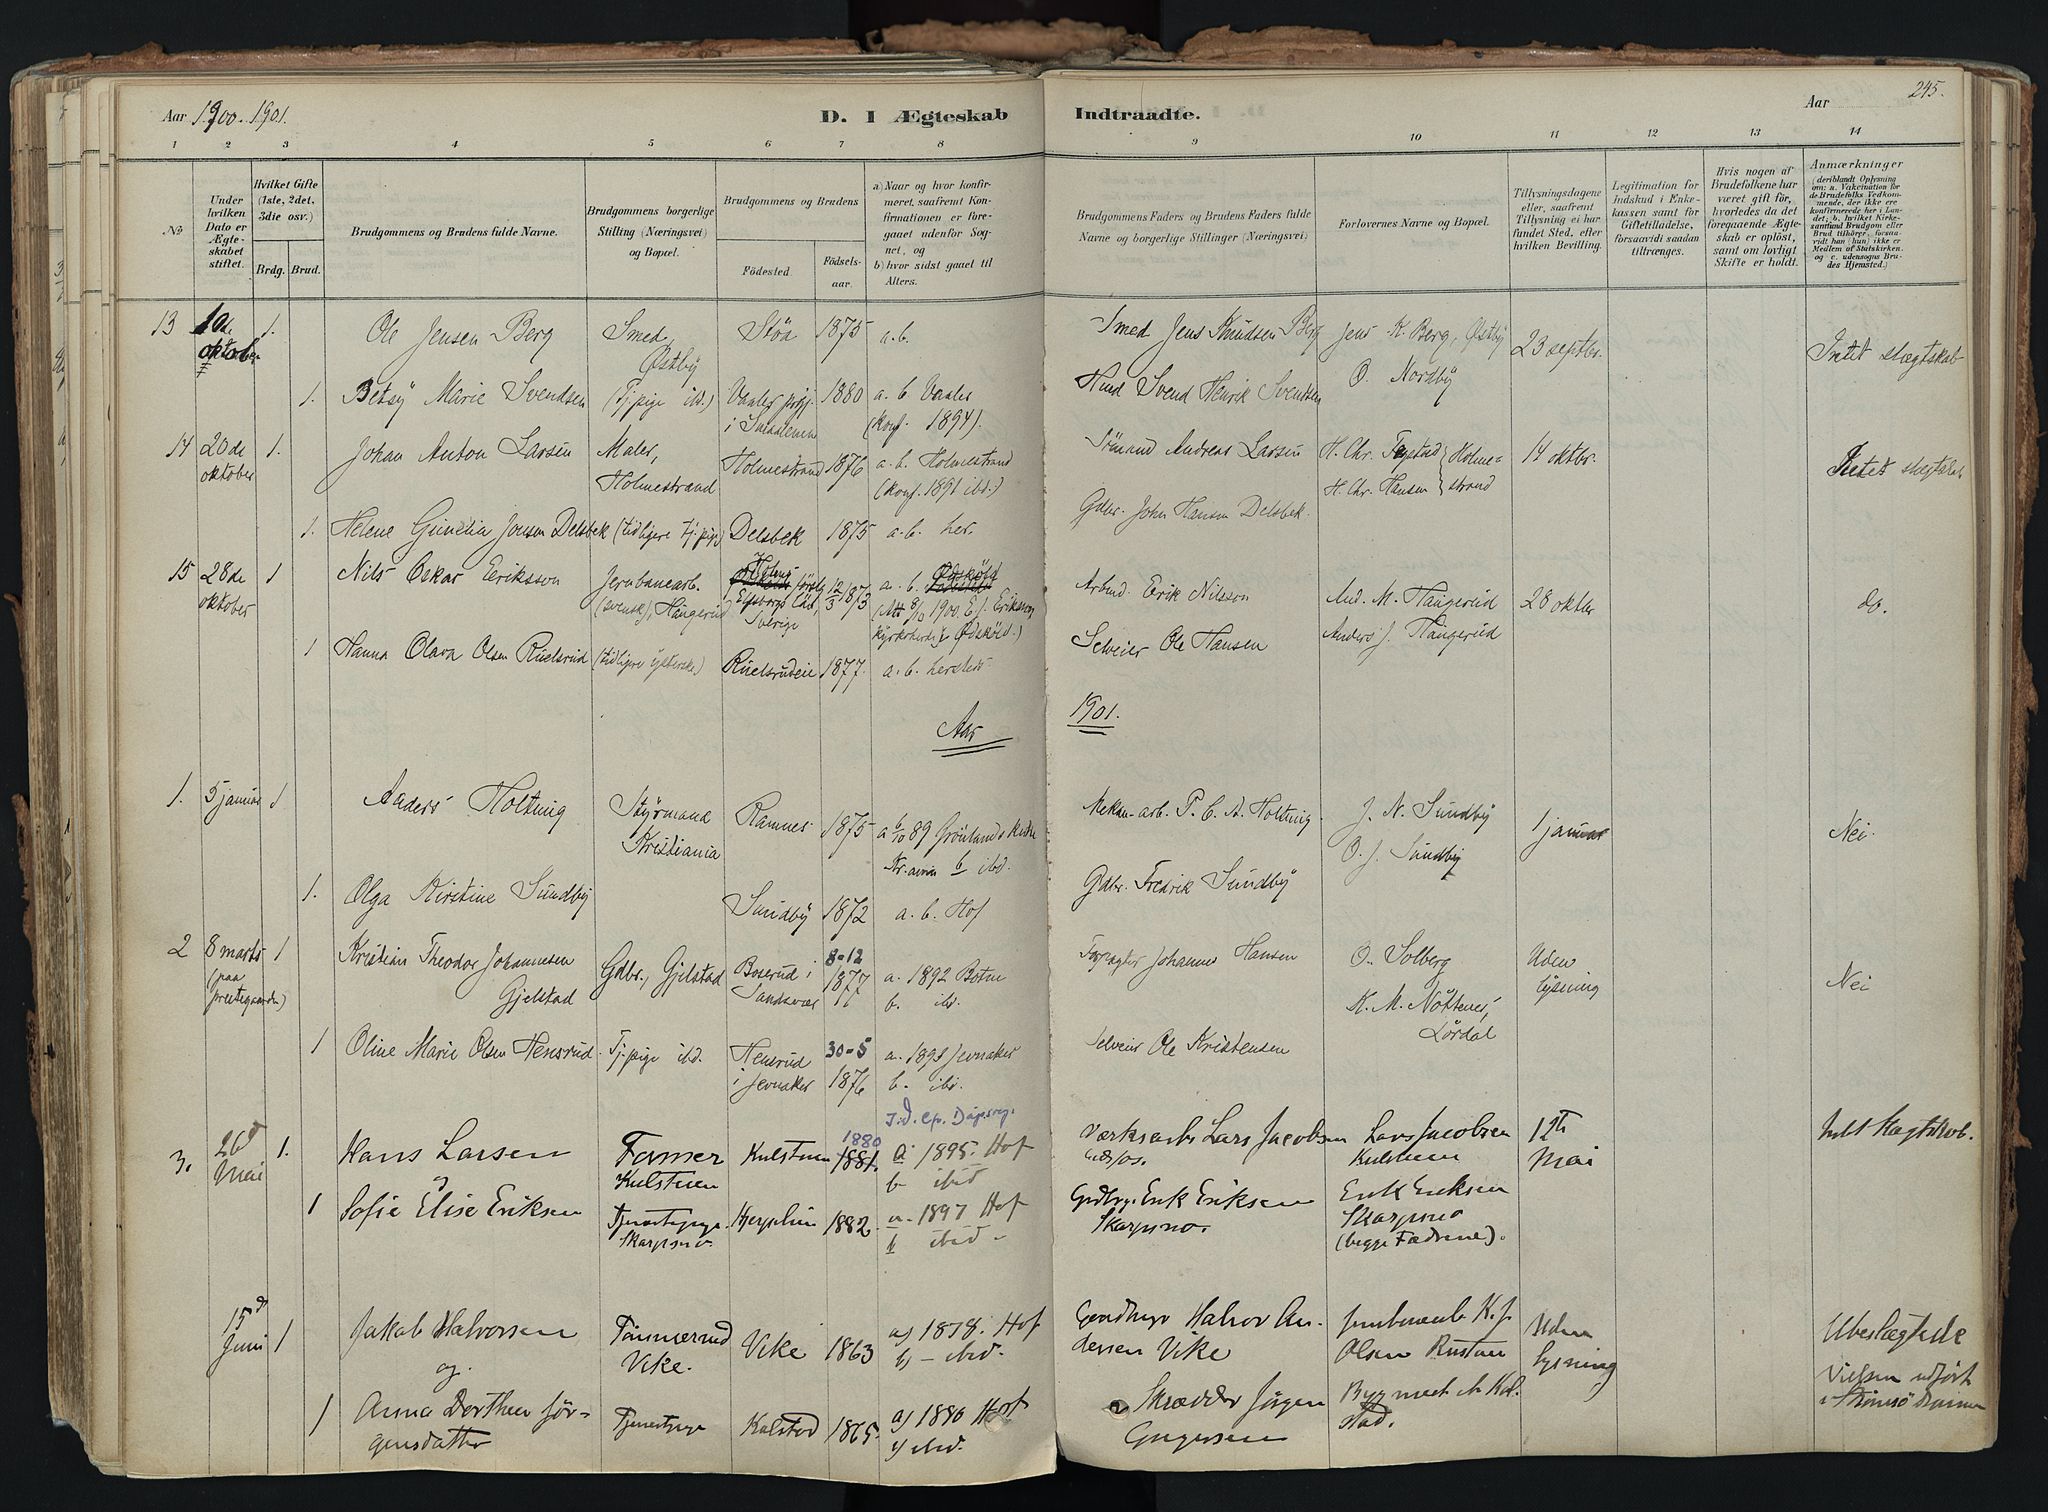 Aar 1900-1901.
D. I Ægteskab Indtraadte.
Aar
245.
1 2 3 4 5 6 7 8 9 10 11 12 13 14
No
Under hvilken Dato er Ægteskabet stiftet.
Hvilket Gifte (1ste, 2det, 3die osv.)
Brdg. Brud.
Brudgommens og Brudens fulde Navne.
Brudgommens borgerlige Stilling (Næringsvei) og Bopæl.
Brudgommens og Brudens
Födested.
Födselsaar.
a) Naar og hvor konfirmeret, saafremt Konfirmationen er foregaaet udenfor Sognet, og
b) hvor sidst gaaet til Alters.
Brudgommens Faders og Brudens Faders fulde Navne og borgerlige Stillinger (Næringsvei)
Forlovernes Navne og Bopæl.
Tillysningsdagene eller, saafremt Tillysning ei har fundet Sted, efter hvilken Bevilling.
Legitimation for Indskud i Enkekassen samt for Giftetilladelse, forsaavidt saadan tiltrænges.
Hvis nogen af Brudefolkene har været gift för, hvorledes da det foregaaende Ægteskab er oplöst, samt om lovligt Skifte er holdt.
Anmærkninger
(deriblandt Oplysning om: a. Vakcination for de Brudefolks Vedkommende, der ikke ere konfirmerede her i Landet; b. hvilket Kirkesamfund Brudgom eller Brud tilhörer, forsaavidt han (hun) ikke er Medlem af Statskirken. og c. udensogns Brudes Hjemsted.)
13 10de oktober 1. Ole Jensen Berg Smed, Østby Stöa 1875 a.b. Smed Jens Knudsen Berg Jens K. Berg, Østby O. Nordby 23 septbr. Intet slægtskab
1. Betsy Marie Svendsen (Tj.pige ibd.) Vaaler prgj. i Smaalenene 1880 a. b Vaaler (konf. 1894). Svend Henrik Svendsen
14 20de oktober 1. Johan Anton Larsen Maler, Holmestrand Holmestrand 1876 a. b. Holmestrand (konf. 1891 ibd.) Sömand Andreas Larsen H. Chr. H. Chr. Hansen Holmestrand 14 oktbr. Intet
1. Helene Gunelia Jonsen Delsbek (tidligere tj.pige) Delsbek 1875 a. b. her. Gdbr. John Hansen Delsbek.
15 28de oktober 1 Nils Oskar Eriksson Jernbanearb. (svensk), Hangerud Elfsborgs Län, Sverige 12/3 1873 a. b. Ödsköld (Att 8/10 1900. E. J. Erikson, kyrkoherde i Ödsköld.) Arbmd. Erik Nilsson And. M. Hangerud Anders J. Hangerud 28 oktbr do.
1 Hanna Olava Olsen Ruelsrud (tidligere ysterske) Ruelsrudeie 1877. a. b. hersteds Selveier Ole Hansen
Aar 1901.
1. 5 januar 1 Anders Holtung Styrmand Kristiania Ramnes 1875 a 6/10 89 Grönlands kirke Kr.ania b ibd. Mekan. arb. P. C. A. Holtung J. N. Sundby O. J. Sundby 1 januar Nei.
1. Olga Kirstine Sundby Sundby 1872 a. b. Hof Gdbr. Fredrik Sundby
2 8 marts (paa prestegaarden) 1 Kristian Theodor Johannesen Gjelstad Gdbr., Gjelstad Boserud i Sandsvær 8-12 1877 a. 1892 Botne b. ibd. Forpagter Johannes Hansen O. Solberg K. M. Nöttenes, Lördal Uden lysning Nei
1 Oline Marie Olsen Hensrud. Tj.pige ibd. Hensrud i Jevnaker 30-5 1876 a. 1891 Jevnaker b. ibd. Selveier Ole Kristensen
3. 26d Mai 1. Hans Larsen Tømmer Kulstuen Kulstuen 1880 1881. I.d. efp. Dåpsreg. a 1895. Hof b ibid Værksarb. Lars Jacobsen Lars Jacobsen Kulstuen 12te Mai Intet slægtskab.
1 Sofie Elise Eriksen Tjenestepige Skarpsno. 1882. a. 1897 Hof b ibid Gardbr. Erik Eriksen Skarpsno. Erik Eriksen Skarpsno (begge Fædrene).
15d Juni 1 Jakob Halvorsen og Vike. Vike 1863 a) 1878. Hof b) - ibid. Gardbryg Halvor Andersen Vike Olsen Rustan Uden lysning Ubeslægtede Vielsen udført i Strømsø
1 Anna Dorthea Jørgensdatter Tjenestepige Kolstad 1865. a) 1880 Hof b) ibid. Skrædder Jørgen Kolstad.